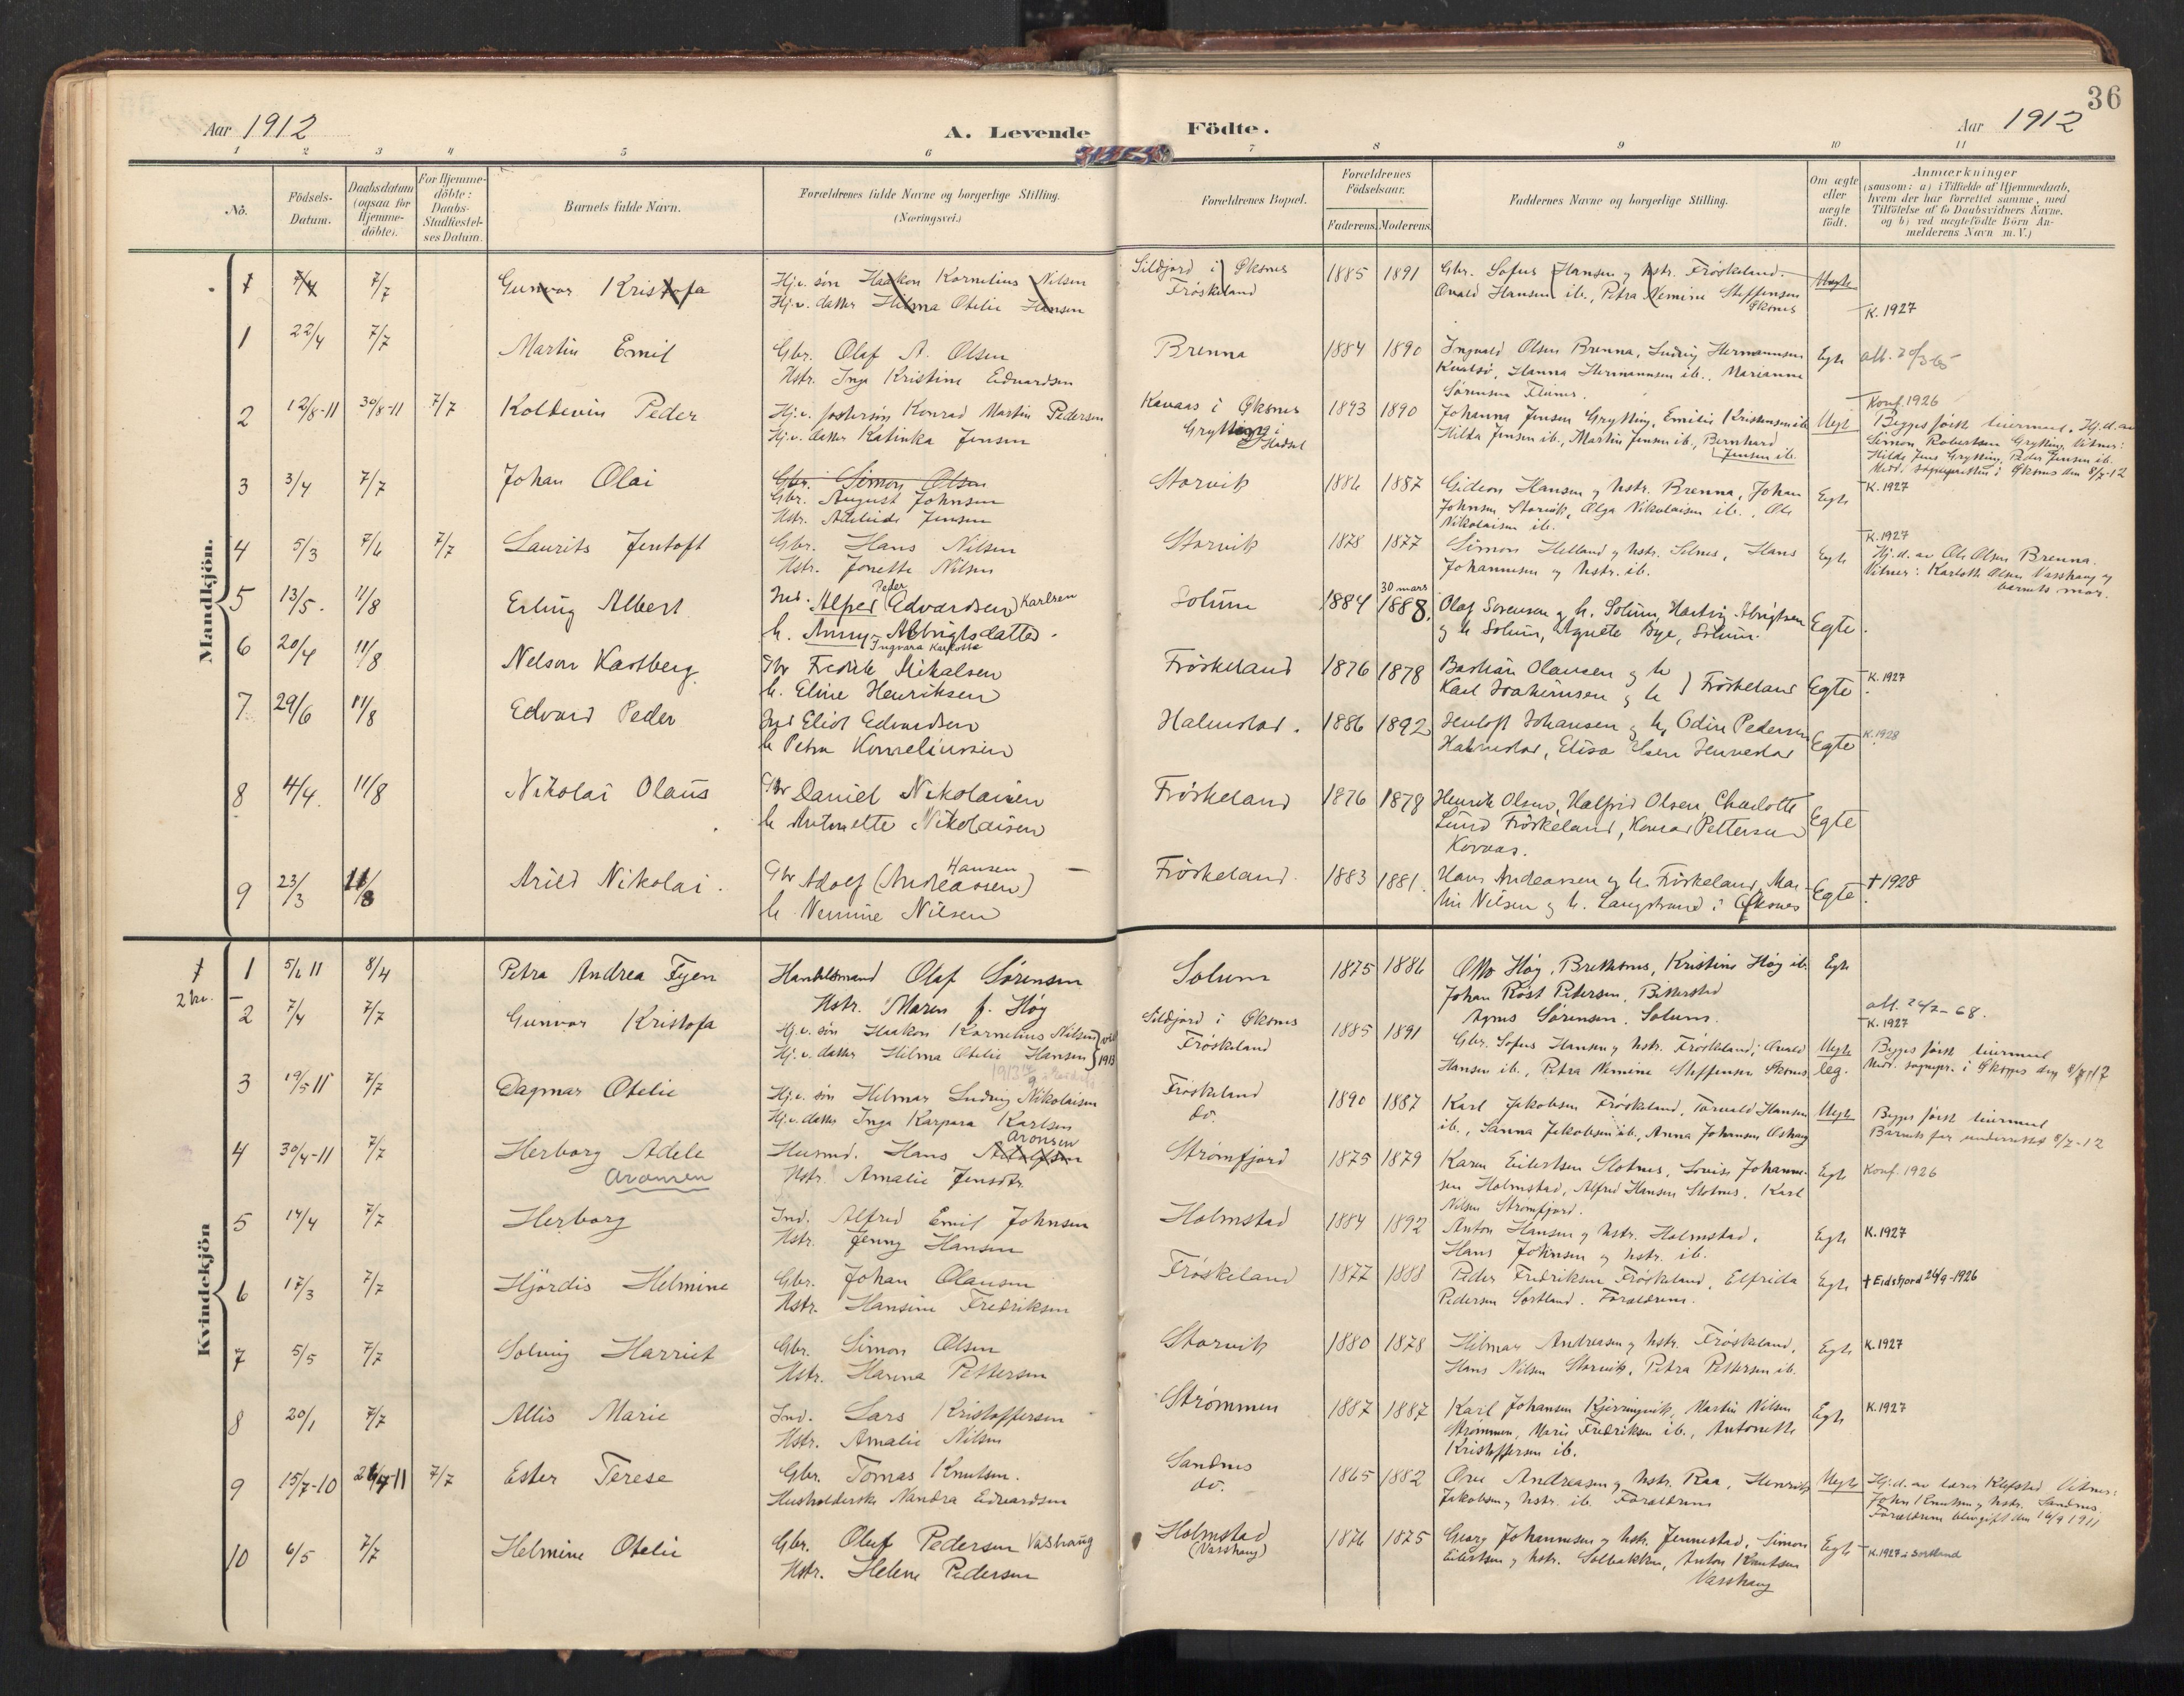 36
Aar 1912
A. Levende Födte.
Aar 1912
1 2 3 4 5 6 7 8 9 10 11
No.
Födsels-Datum.
Daabsdatum (ogsaa for Hjemme-döbte).
For Hjemme-döbte: Daabs-Stadfæstel-ses Datum.
Barnets fulde Navn.
Forældrenes fulde Navne og borgerlige Stilling. (Næringsvei.)
Forældrenes Bopæl.
Forældrenes Födselsaar.
Faderens. Moderens.
Faddernes Navne og borgerlige Stilling.
Om ægte eller uægte födt.
Anmærkninger
(saasom: a) i Tilfælde af Hjemmedaab,
hvem der har forrettet samme, med
Tilföielse af to Daabsvidners Navne,
og b) ved uægtefödte Börn An-
melderens Navn m. V.)
Mandkjön.
1 7/4 7/7 Gunvor Kristofa
Hj.v. søn Haakon Kornelius Nilsen
Hj.v. datter Hilma Otelie Hansen
Sildfjord i Øksnes
Frøskeland
1885 1891
Gbr. Sofus Hansen og hstr. Frøskeland.
Orvald Hansen ib., Petra Nemine Steffensen
Øksnes
Uegte
K. 1927
1 22/4 7/7 Martin Emil
Gbr. Olaf A. Olsen
Hstr. Inga Kristine Edvardsen
Brenna 1884 1890
Ingvald Olsen Brenna, Ludvig Hermannsen
Hanna Hermannsen ib., Marianne
Sørensen
Egte
2 12/8-11 30/8-11 7/7 Koldevin Peder
Hj.v. fostersøn Konrad Martin Pedersen
Hj.v. datter Katinka Jensen
Kavaas i Øksnes
Grytting i Hadsel
1893 1890
Johanna Jensen Grytting, Emilie Kristensen ib.
Hilda Jensen ib., Martin Jensen ib., Bernhard
Jensen ib.
Uegte
Konf. 1926
Begges første leiermaal. Hj.d. av
Simon Robertsen Grytting. Vitner:
Hilda Jens Grytting, Peder Jensen ib.
Medd. sogneprsten i Øksnes den 8/7-12
3 3/4 7/7 Johan Olai
Gbr. Simon Olsen
Gbr. August Johnsen
Hstr. Adelheide Jensen
Storvik 1886 1887
Gideon Hansen og hstr. Brenna, Johan
Johnsen Storvik, Olga Nikolaisen ib., Ole
Nikolaisen ib.
Egte
K. 1927
4 5/3 7/6 7/7 Laurits Jentoft
Gbr. Hans Nilsen
Hstr. Jonette Nilsen
Storvik 1878 1877
Simon Helland og hstr. Selnes, Hans
Johannesen og hstr. ib.
Egte
K. 1927
Hj.d. av Ole Olsen Brenna.
Vitner: Karlotte Olsen Vasshaug og
barnets mor.
5 13/5. 11/8 Erling Albert
Ind. Alfred (Edvardsen) Peder Karlsen
h. Anny Albrigtsdatter.
Ingvara Karlotta
Solum 1884 30 mars 1888.
Olaf Sørensen og h. Solum, Hartvig Albrigtsen
og h Solum, Agnete Bye, Solum.
Egte.
6 20/4 11/8 Nelson Karlberg
Gbr Fredrik Mikalsen
h. Eline Henriksen
Frøskeland 1876 1878
Bastian Olausen og h
Karl Joakimsen og h } Frøskeland
Egte.
K. 1927
7. 29/6 11/8 Edvard Peder
Ind Eliot Edvardsen
h Petra Korneliussen
Halmstad. 1886 1892
Jentoft Johansen og h, Odin Pedersen
Halmstad, Elisa Olsen Jennestad
Egte
K. 1928
8 4/4. 11/8 Nikolai Olaus
Gbr Daniel Nikolaisen
h Antonette Nikolaisen
Frøskeland 1876 1878
Henrik Olsen, Halfrid Olsen, Charlotte
Lund Frøskeland, Konrad Pettersen
Kovaas.
Egte
9 23/3 11/8 Arild Nikolai.
Gbr Adolf (Andreassen) Hansen
h. Nemine Nilsen
Frøskeland. 1883 1881.
Hans Andreassen og h. Frøskeland, Mar-
tin Nilsen og h. Langstrand i Øksnes
Egte.
† 1928
Kvindekjön
2 kr.
1 5/6 11 8/4 Petra Andrea Fyen
Handelsmand Olaf Sørensen
Hstr. Maren f. Høg
Solum 1875 1886
Otto Høg, Kristine Høg ib.
Johan Røst Petersen, Bitterstad
Agnes Sørensen, Solum.
Egte
2 7/4 7/7 Gunvor Kristofa
Hj.v. søn Haakon Kornelius Nilsen
Hj.v. datter Hilma Otelie Hansen
1913
Sildfjord i Øksnes
Frøskeland
1885 1891
Gbr. Sofus Hansen og hstr. Frøskeland, Orvald
Hansen ib., Petra Nemine Steffensen Øksnes
Uegte leg.
K. 1927
Begges første leiermaal
Medd. sognepr. i Øksnes den 8/7 1912
3 19/5 11 7/7 Dagmar Otelie
Hj.v. søn Helmar Ludvig Nikolaisen
Hj.v. datter Inga Karpara Karlsen
Frøskeland
do.
1890 1887
Karl Jakobsen Frøskeland, Torvald Hansen
ib., Sanna Jakobsen ib., Anna Johansen
Uegte
Begges første leiermaal
Barnets far underrettet 8/7-12
4 30/4-11 7/7 Herborg Adele
Aronsen
Husmd. Hans Adolfsen Aronsen
Hstr. Amalie Jensdtr.
Strømfjord 1875 1879
Karen Eilertsen Slotnes, Lovise Johanne-
sen Holmstad, Alfred Hansen Slotnes, Karl
Nilsen Strømfjord.
Egte
Konf. 1926
5 14/4 7/7 Herborg
Ind. Alfred Emil Johnsen
Hstr. Jenny Hansen
Holmstad 1884 1892
Anton Hansen og hstr. Holmstad,
Hans Johnsen og hstr. ib.
Egte
K. 1927
6 17/3 7/7 Hjørdis Helmine
Gbr. Johan Olausen
Hstr. Hansine Fredriksen
Frøskeland 1877 1888
Peder Fredriksen Frøskeland, Elfrida
Pedersen Sortland. Forældrene.
Egte
† Eidsfjord 26/9-1926
7 5/5 7/7 Solveig Harriet
Gbr. Simon Olsen
Hstr. Hanna Pettersen
Storvik 1880 1878
Hilmar Andreasen og hstr. Frøskeland,
Hans Nilsen Storvik, Petra Pettersen ib.
Egte
K. 1927
8 20/1 7/7 Allis Marie
Ind. Lars Kristoffersen
Hstr. Amalie Nilsen
Strømmen 1887 1887
Karl Johansen Kjerringvik, Martin Nilsen
Strømmen, Marie Fredriksen ib., Antonette
Kristoffersen ib.
Egte
K. 1927
9 15/7-10 7/7 Ester Terese
Gbr. Tomas Knutsen.
Husholderske Nandra Edvardsen
Sandnes
do.
1865 1882
Ove Andreasen og hstr. Raa, Henrik
Jakobsen og hstr. ib. Forældrene
Uegte
Hj.d. av lærer Klefstad Vitner:
John Knutsen og hstr. Sandnes.
Forældrene blev gift den 16/9 1911
10 6/5 7/7 Helmine Otelie
Gbr. Oluf Pedersen Vashaug
Hstr. Helene Pedersen
Holmstad
(Vasshaug)
1876 1875
Georg Johannesen og hstr. Jennestad, Simon
Eilertsen og hstr. Solbakken, Anton Knutsen
Vasshaug
Egte
K. 1927 i Sortland